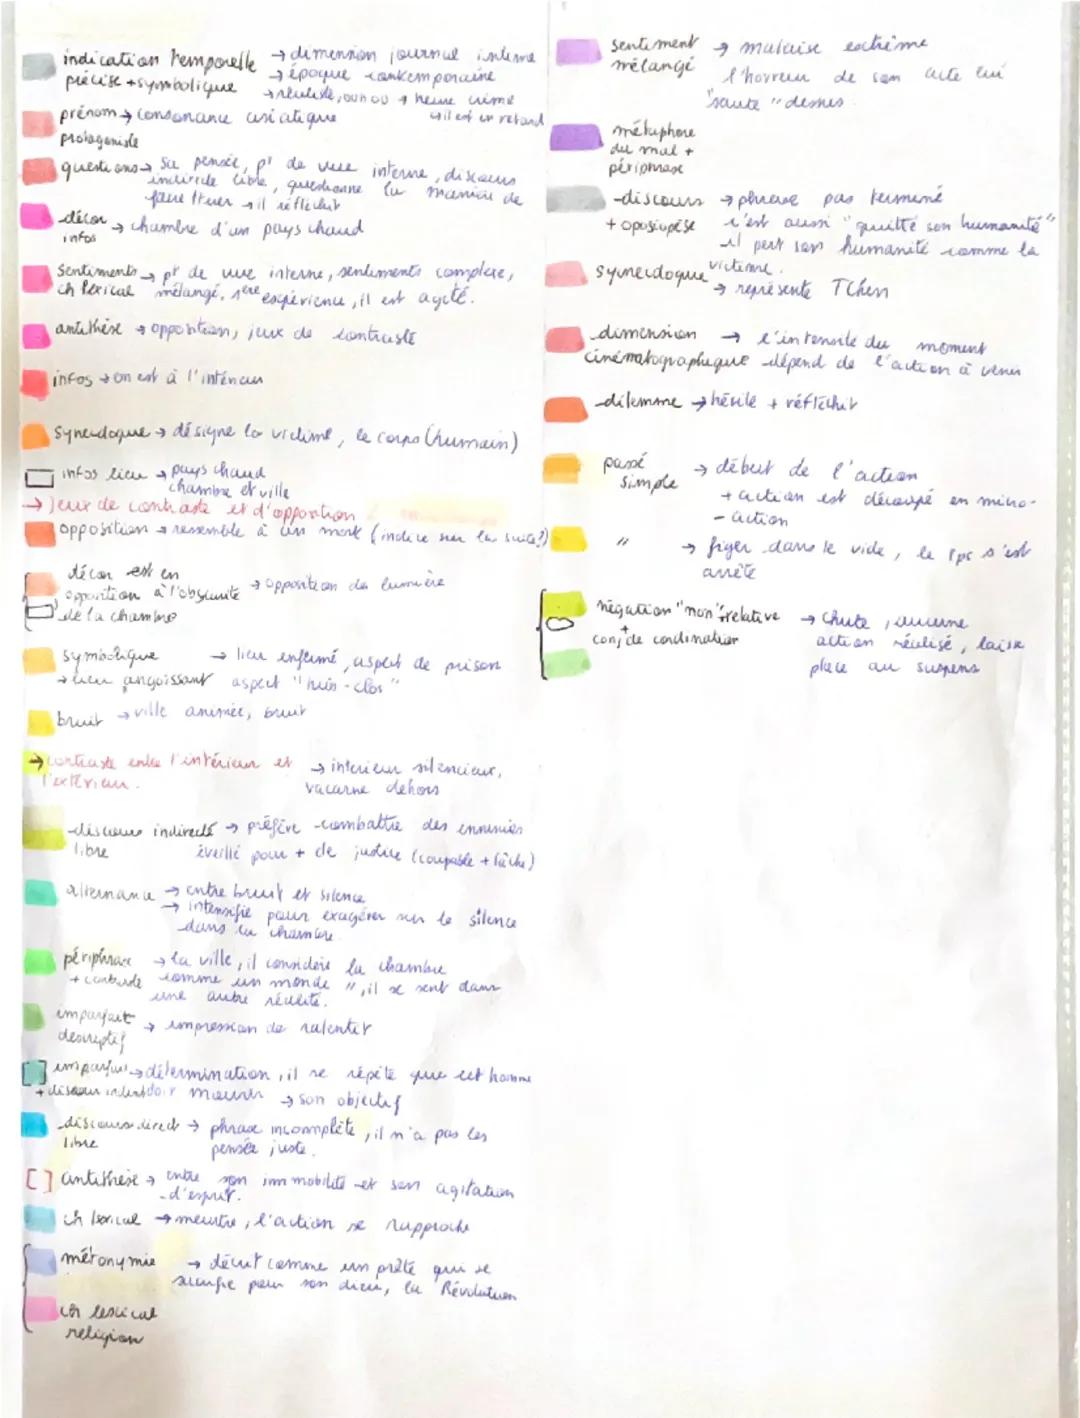 indication temporelle → dimension journal intime
précise + symbolique → époque contemporaine
→ réaliste, oun ou → heure crime
↳ il est en retard
prénom → consonance asiatique
protagoniste
questions → sa pensée, pt de vue interne, discours
indirecte libre, questionne la manière de
faire → il réfléchit
décor → chambre d'un pays chaud
infos
sentiments → pt de vue interne, sentiments complexe,
ch lexical mélangé, 1ère expérience, il est agité.
antithèse → opposition, jeux de contraste
infos → on est à l'intérieur
synecdoque → désigne la victime, le corps (humain)
infos lieu → pays chaud
chambre et ville
→ jeux de contraste et d'opposition
opposition → ressemble à un mort (indice sur la suite?)
décor est en
opposition à l'obscurité → opposition de lumière
de la chambre
symbolique → lieu enfermé, aspect de prison
→ lieu angoissant aspect "huis-clos"
bruit → ville animée, bruit
→ contraste entre l'intérieur et → intérieur silencieux,
l'extérieur. vacarne dehors
discours indirecte → préfère combattre des ennemies
libre éveillé pour + de justice (coupable + lâche)
alternance → entre bruit et silence
→ intensifie pour exagérer sur le silence
dans la chambre.
périphrase → la ville, il considère la chambre
+ contraste comme un monde ", il se sent dans
une autre réalité.
imparfait → impression de ralentir
descriptif
imparfait → détermination, il se répète que cet homme
+ discours indirect doit mourir → son objectif
discours direct → phrase incomplète, il n'a pas les
libre pensée juste.
[ ] antithèse → entre son immobilité et son agitation
d'esprit.
ch lexical → meurtre, l'action se rapproche
métonymie → décrit comme un prête qui se
sacrifie pour son dieu, la Révolution
ch lexical
religion
sentiment → malaise extrême
mélangé l'horreur de son acte lui
"saute" dessus.
métaphore
du mal +
périphrase
discours → phrase pas terminé
+ aposiopèse c'est aussi "quitté son humanité"
il perd son humanité comme la
victime.
synecdoque → représente TChen
dimension → l'intensité du moment
cinématographique dépend de l'action à venir
dilemme → hésite + réfléchir
passé → début de l'action
simple + action est découpé en micro-
- action
" → figer dans le vide, le tps s'est
arrête
négation "non" + relative → chute, aucune
+
conj de coordination action réalisé, laisse
place au suspens